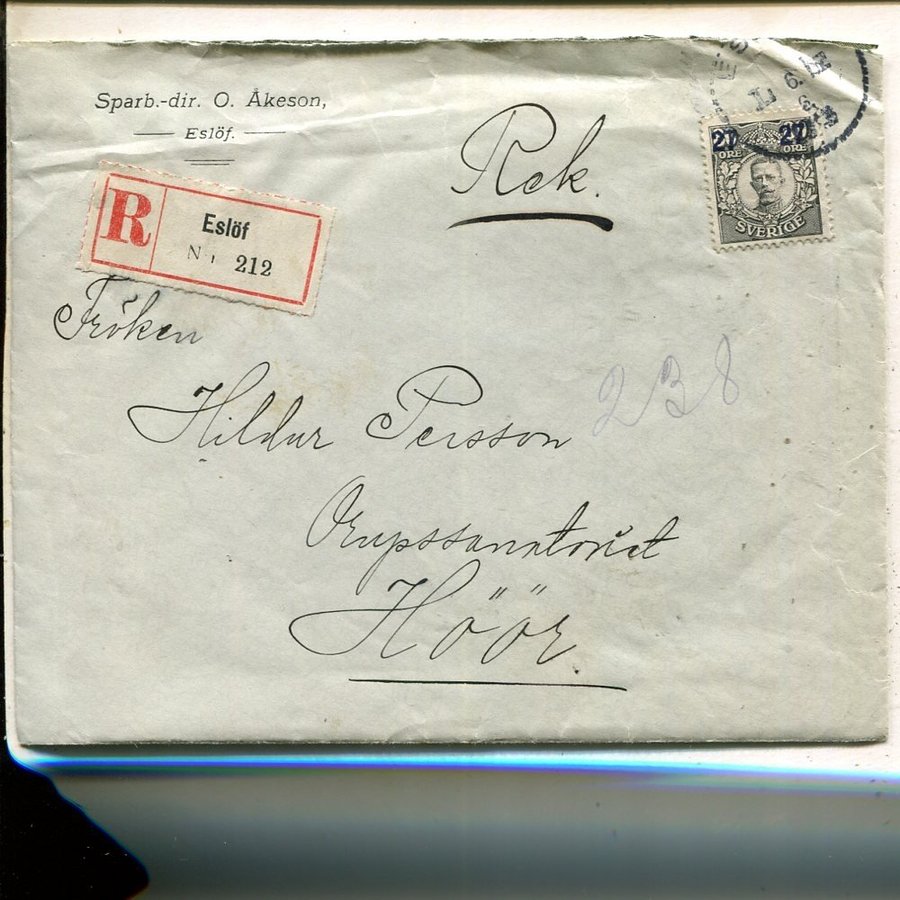 Sparb.-dir. O. Åkeson,
Eslöf.
Rek.
27 27
ÖRE ÖRE
SVERIGE
R Eslöf
N 212
Fröken
Hildur Persson
238
Orupssanatoriet
Höör